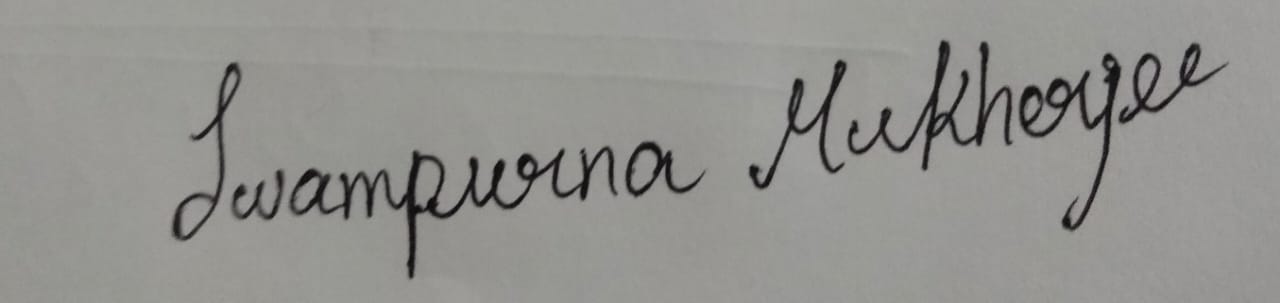 Swampurna Mukherjee